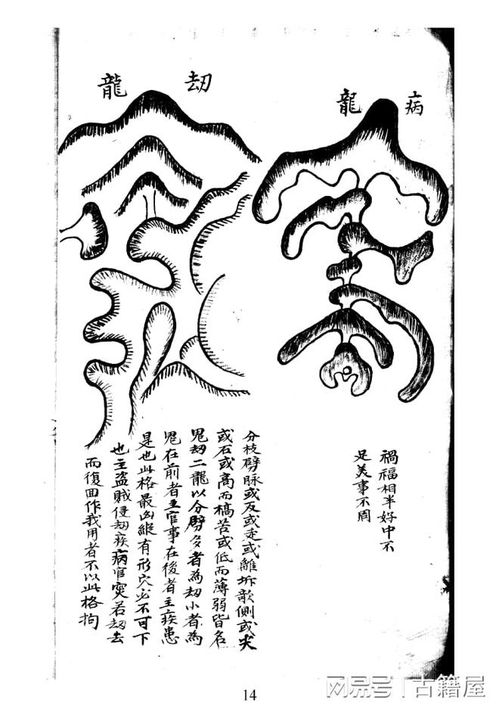 病龍
禍福相半好中不
足美事不周
劫龍
分枝劈脉或反或走或離拆欹側或尖
或石或高而槁苦或低而薄弱皆名
鬼劫二龍以分劈多者為劫小者為
鬼在前者主官事在後者主疾患
是也此格最凶縱有形穴必不可下
也主盜賊侵劫疾病官灾若劫去
而復回作我用者不以此格拘
14
网易号 | 古籍屋